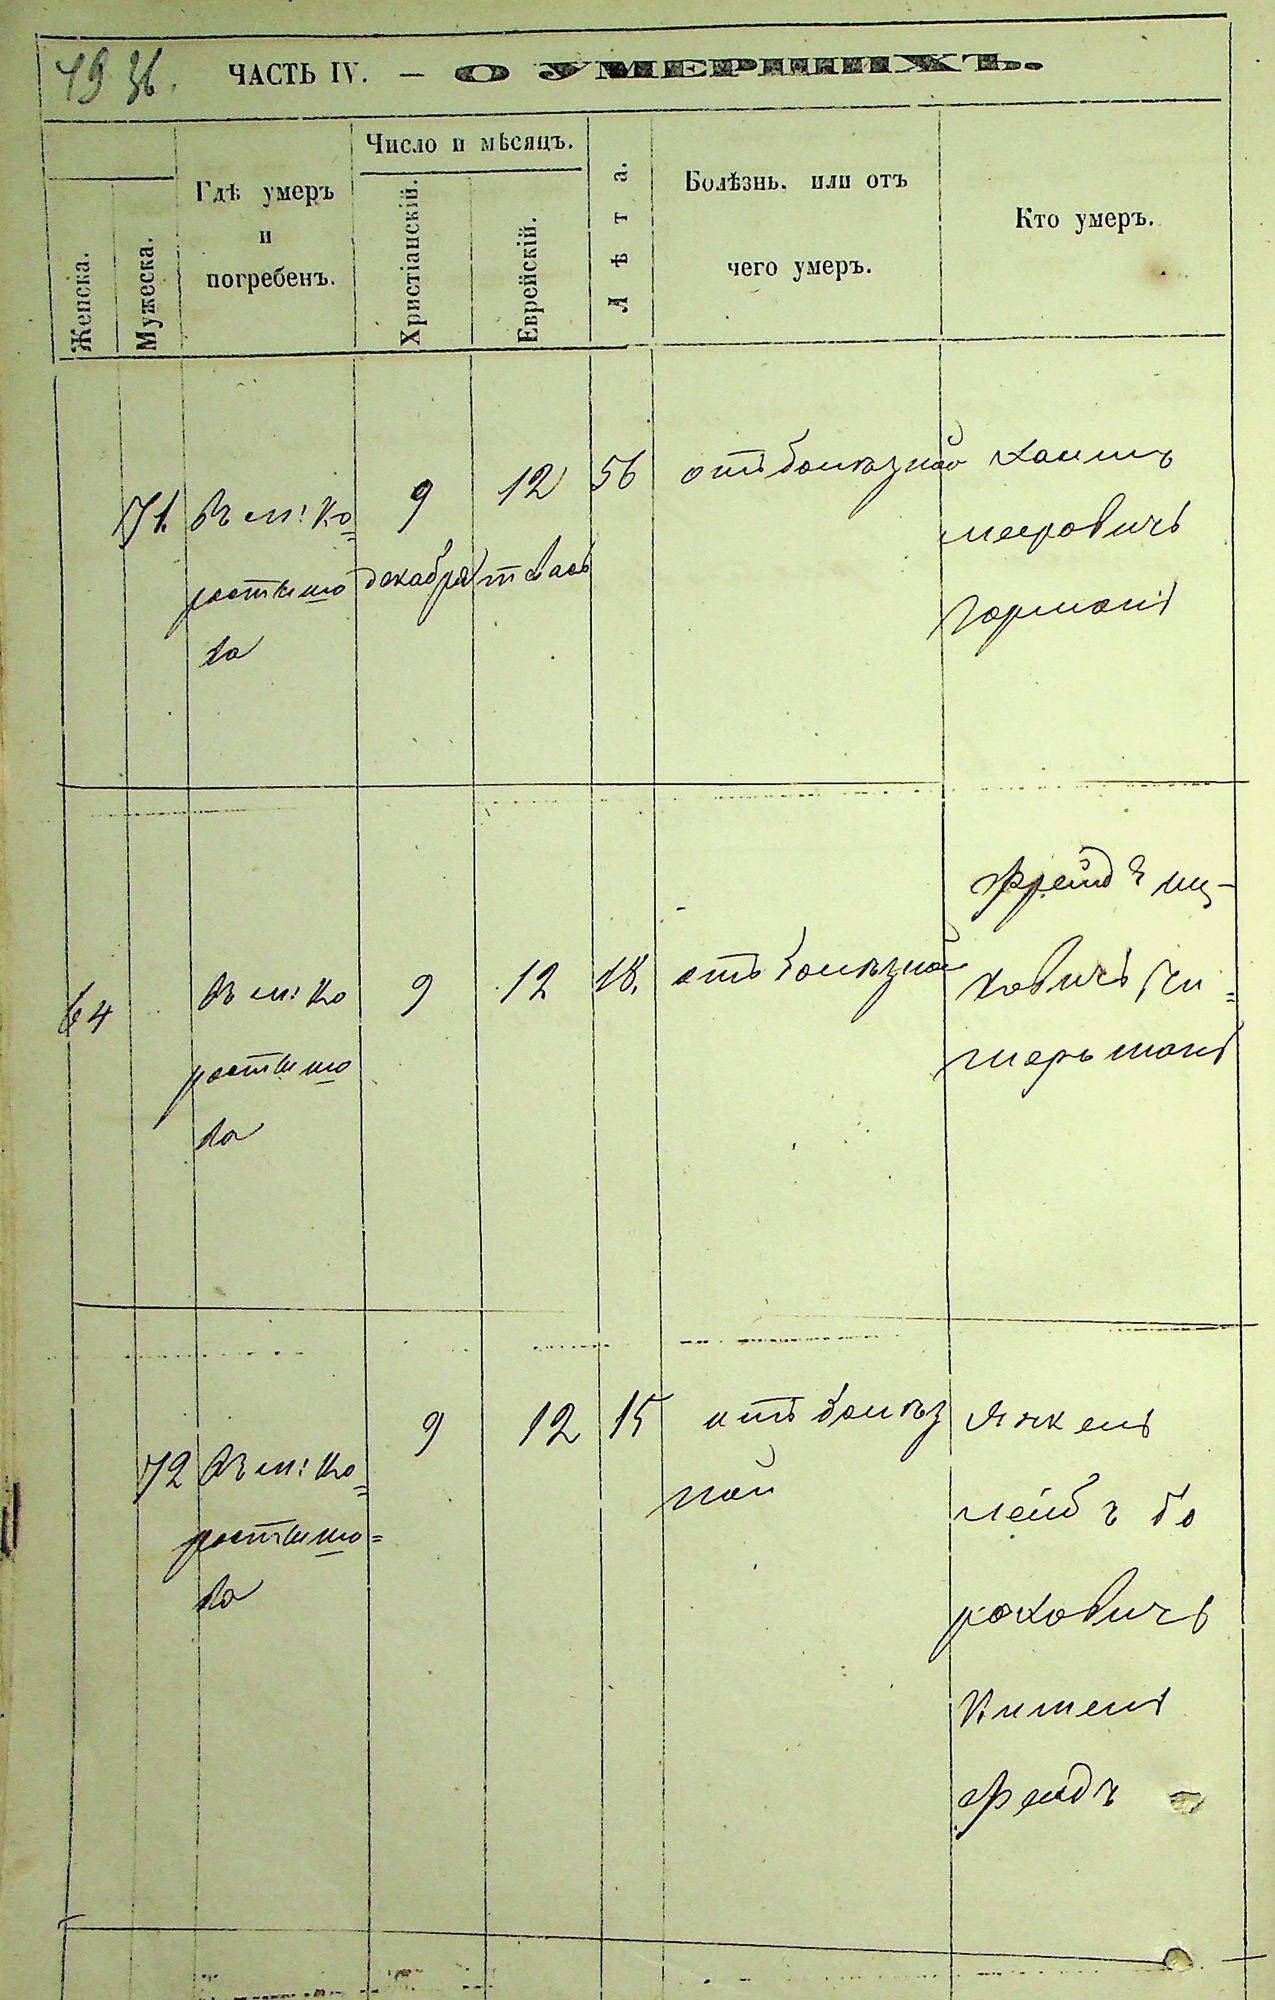 ЧАСТЬ IV. — О УМЕРШИХЪ.
Женска.
Мужеска.
Гдѣ умеръ
и
погребенъ.
Число и мѣсяцъ.
Христіанскій.
Еврейскій.
Лѣта.
Болѣзнь, или отъ
чего умеръ.
Кто умеръ.
71. Въ м: Ко=
ростышо
ва
9
декабря
12
тевасъ
56
отъ болѣзной
Хаимъ
мееровичъ
64
Въ м: Ко
ростышо
ва
9
12
18.
отъ болѣзной
Фрейдъ иц-
ковичъ
72 Въ м: Ко=
ростышо=
ва
9
12
15
отъ болѣз
ной
Янкель
лейбъ бо
роховичъ